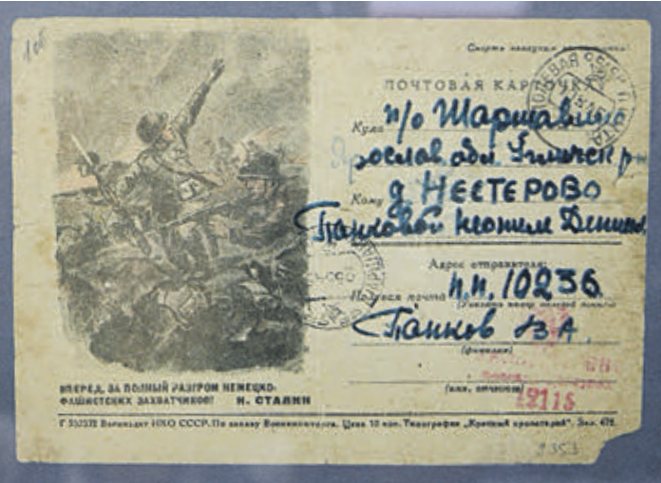 Смерть немецким
ПОЛЕВАЯ ПОЧТА
ПОЧТОВАЯ КАРТОЧКА
Куда п/о Шаршавино
Ярослав. обл. Угличск. р-н
Кому д. НЕСТЕРОВО
Панковой
Адрес отправителя:
Полевая почта п.п. 10236
Панков В А.
(фамилия)
(имя, отчество)
12115
ВПЕРЕД, ЗА ПОЛНЫЙ РАЗГРОМ НЕМЕЦКО-
ФАШИСТСКИХ ЗАХВАТЧИКОВ! И. СТАЛИН
Воениздат НКО СССР. По заказу Военкниготорга. Цена 10 коп. Типография „Красный пролетарий“. Зак. 478.